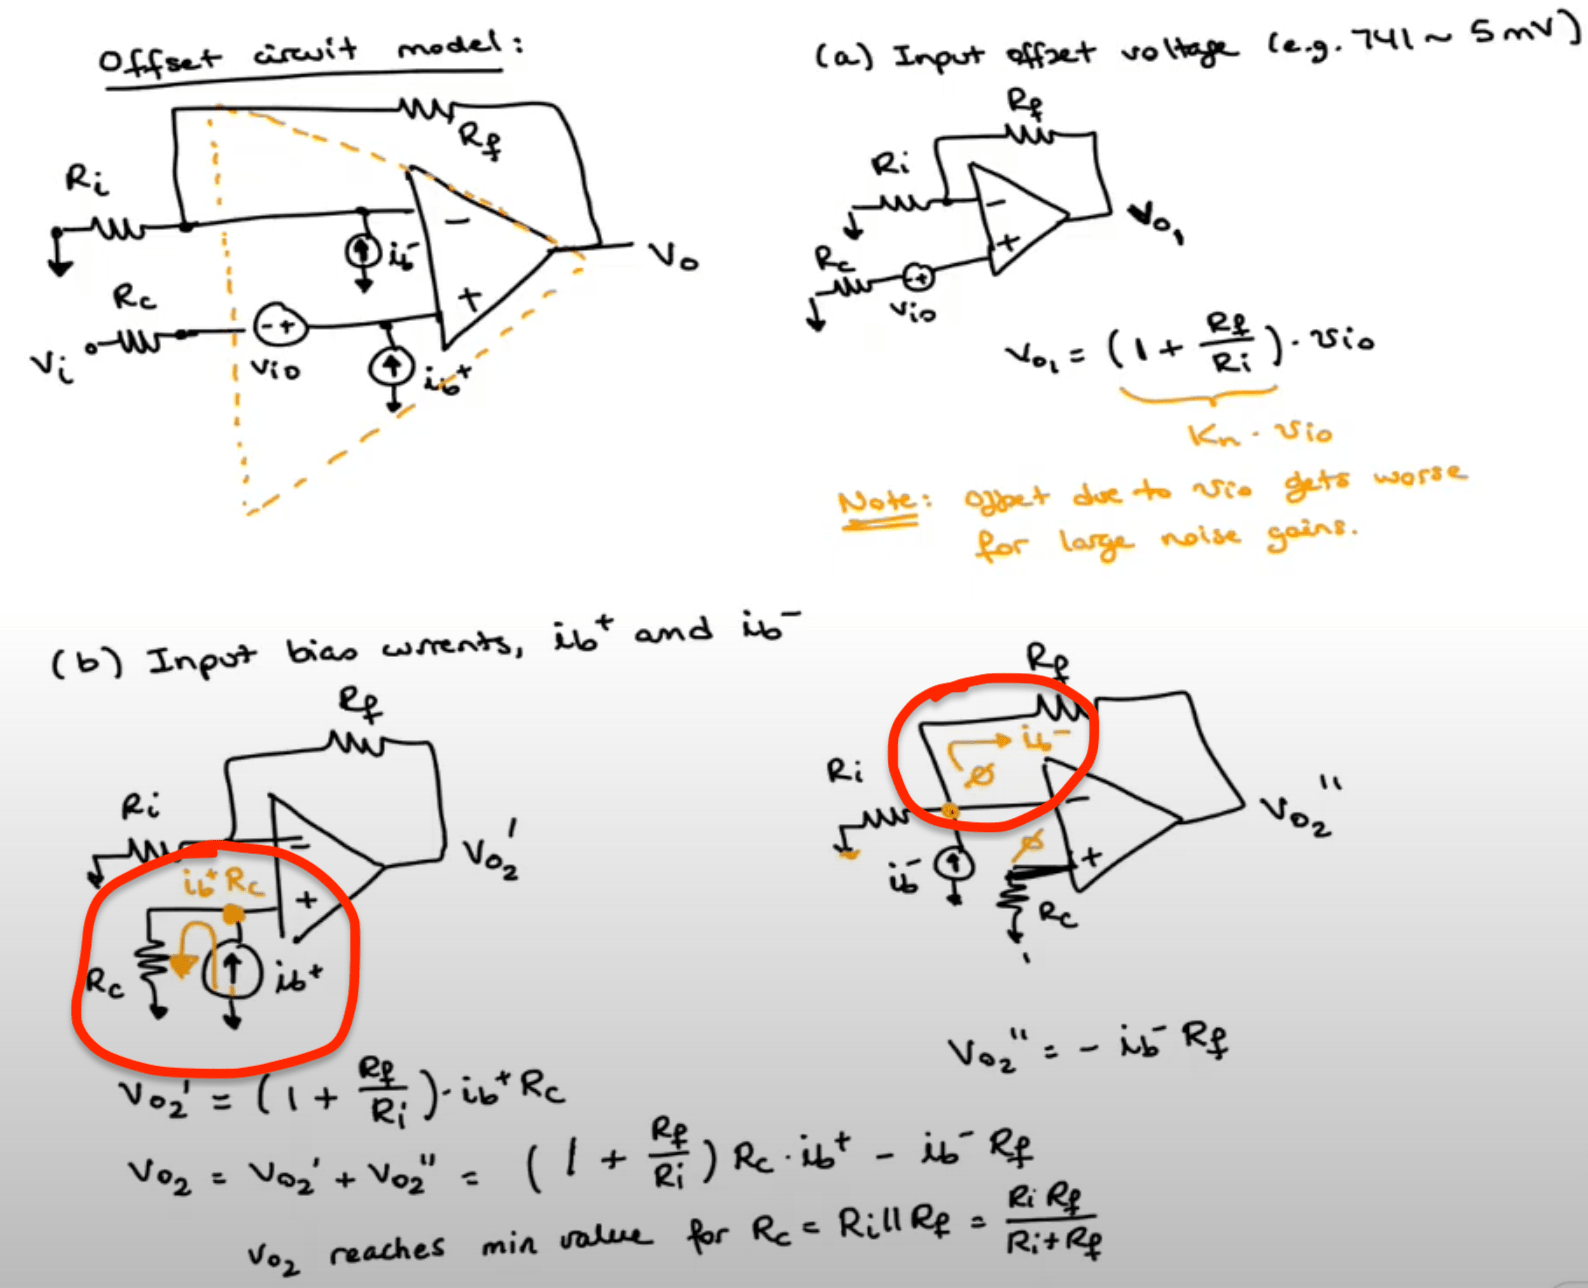 Offset circuit model:
Rf
Ri
ib⁻
−
+
Vo
Rc
Vi
- +
Vio
ib⁺
(a) Input offset voltage (e.g. 741 ~ 5 mV)
Rf
Ri
−
+
Vo₁
Rc
- +
Vio
Vo₁ = (1 + Rf/Ri) · Vio
Kn · Vio
Note: Offset due to Vio gets worse
for large noise gains.
(b) Input bias currents, ib⁺ and ib⁻
Rf
Ri
−
ib⁺Rc
+
Vo₂'
Rc
ib⁺
Vo₂' = (1 + Rf/Ri) · ib⁺ Rc
Rf
ib⁻
Ø
Ri
−
Ø
+
Vo₂''
ib⁻
Rc
Vo₂'' = - ib⁻ Rf
Vo₂ = Vo₂' + Vo₂'' = (1 + Rf/Ri) Rc · ib⁺ - ib⁻ Rf
Vo₂ reaches min value for Rc = Ri || Rf = Ri Rf / Ri + Rf